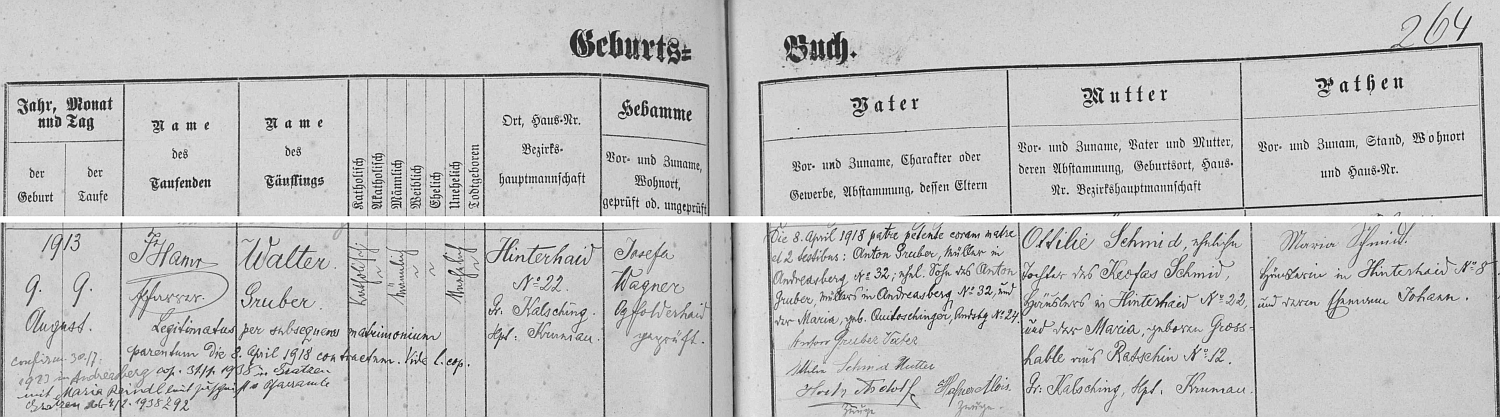 264
Geburts=
Buch.
Jahr, Monat
und Tag
der
Geburt
der
Taufe
Name
des
Taufenden
Name
des
Täuflings
Katholisch
Akatholisch
Männlich
Weiblich
Ehelich
Unehelich
Todtgeboren
Ort, Haus-Nr.
Bezirks-
hauptmannschaft
Hebamme
Vor- und Zuname,
Wohnort,
geprüft od. ungeprüft
Vater
Vor- und Zuname, Charakter oder
Gewerbe, Abstammung, dessen Eltern
Mutter
Vor- und Zuname, Vater und Mutter,
deren Abstammung, Geburtsort, Haus-
Nr. Bezirkshauptmannschaft
Pathen
Vor- und Zunam, Stand, Wohnort
und Haus-Nr.
1913
9. 9.
August.
Pfarrer
Walter
Gruber.
Katholisch
Männlich
Unehelich
Hinterhaid
No 22.
Gr. Kalsching.
Hpt. Krumau.
Josefa
Wagner
Ogfolderhaid
geprüft.
Legitimatus per subsequens matrimonium
parentum die 8. April 1918 contractum. Vide l. cop.
confirm. 30/7.
1923 in Andreasberg cop. 1938 in Gratzen
mit Maria Reindl laut Zuschrift Pfarramte
Gratzen 1938 Z 92
Die 8. April 1918 patre petente coram matre
et 2 testibus: Anton Gruber, Müller in
Andreasberg No 32, ehel. Sohn des Anton
Gruber, Müllers in Andreasberg No 32, und
der Maria, geb. Quitoschinger, Andrbg No 24.
Anton Gruber Vater
Ottilie Schmid Mutter
Alois
Zeuge
Zeuge.
Ottilie Schmid, eheliche
Tochter des Kleofas Schmid,
Häuslers in Hinterhaid No 22,
und der Maria, geboren Gross-
hable aus Ratschin No 12.
Gr. Kalsching, Hpt. Krumau.
Maria Schmidt.
Häuslerin in Hinterhaid No 8
und deren Ehemann Johann.